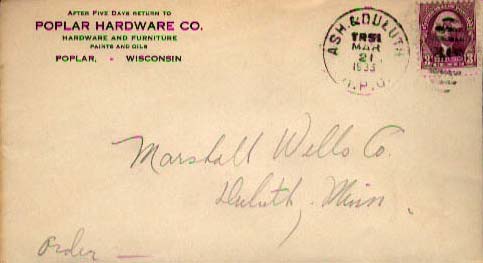 AFTER FIVE DAYS RETURN TO
POPLAR HARDWARE CO.
HARDWARE AND FURNITURE
PAINTS AND OILS
POPLAR, - WISCONSIN
ASH. & DULUTH
TR51
MAR
21
1933
R.P.O.
3 3
Marshall Wells Co.
Duluth, Minn.
Order —